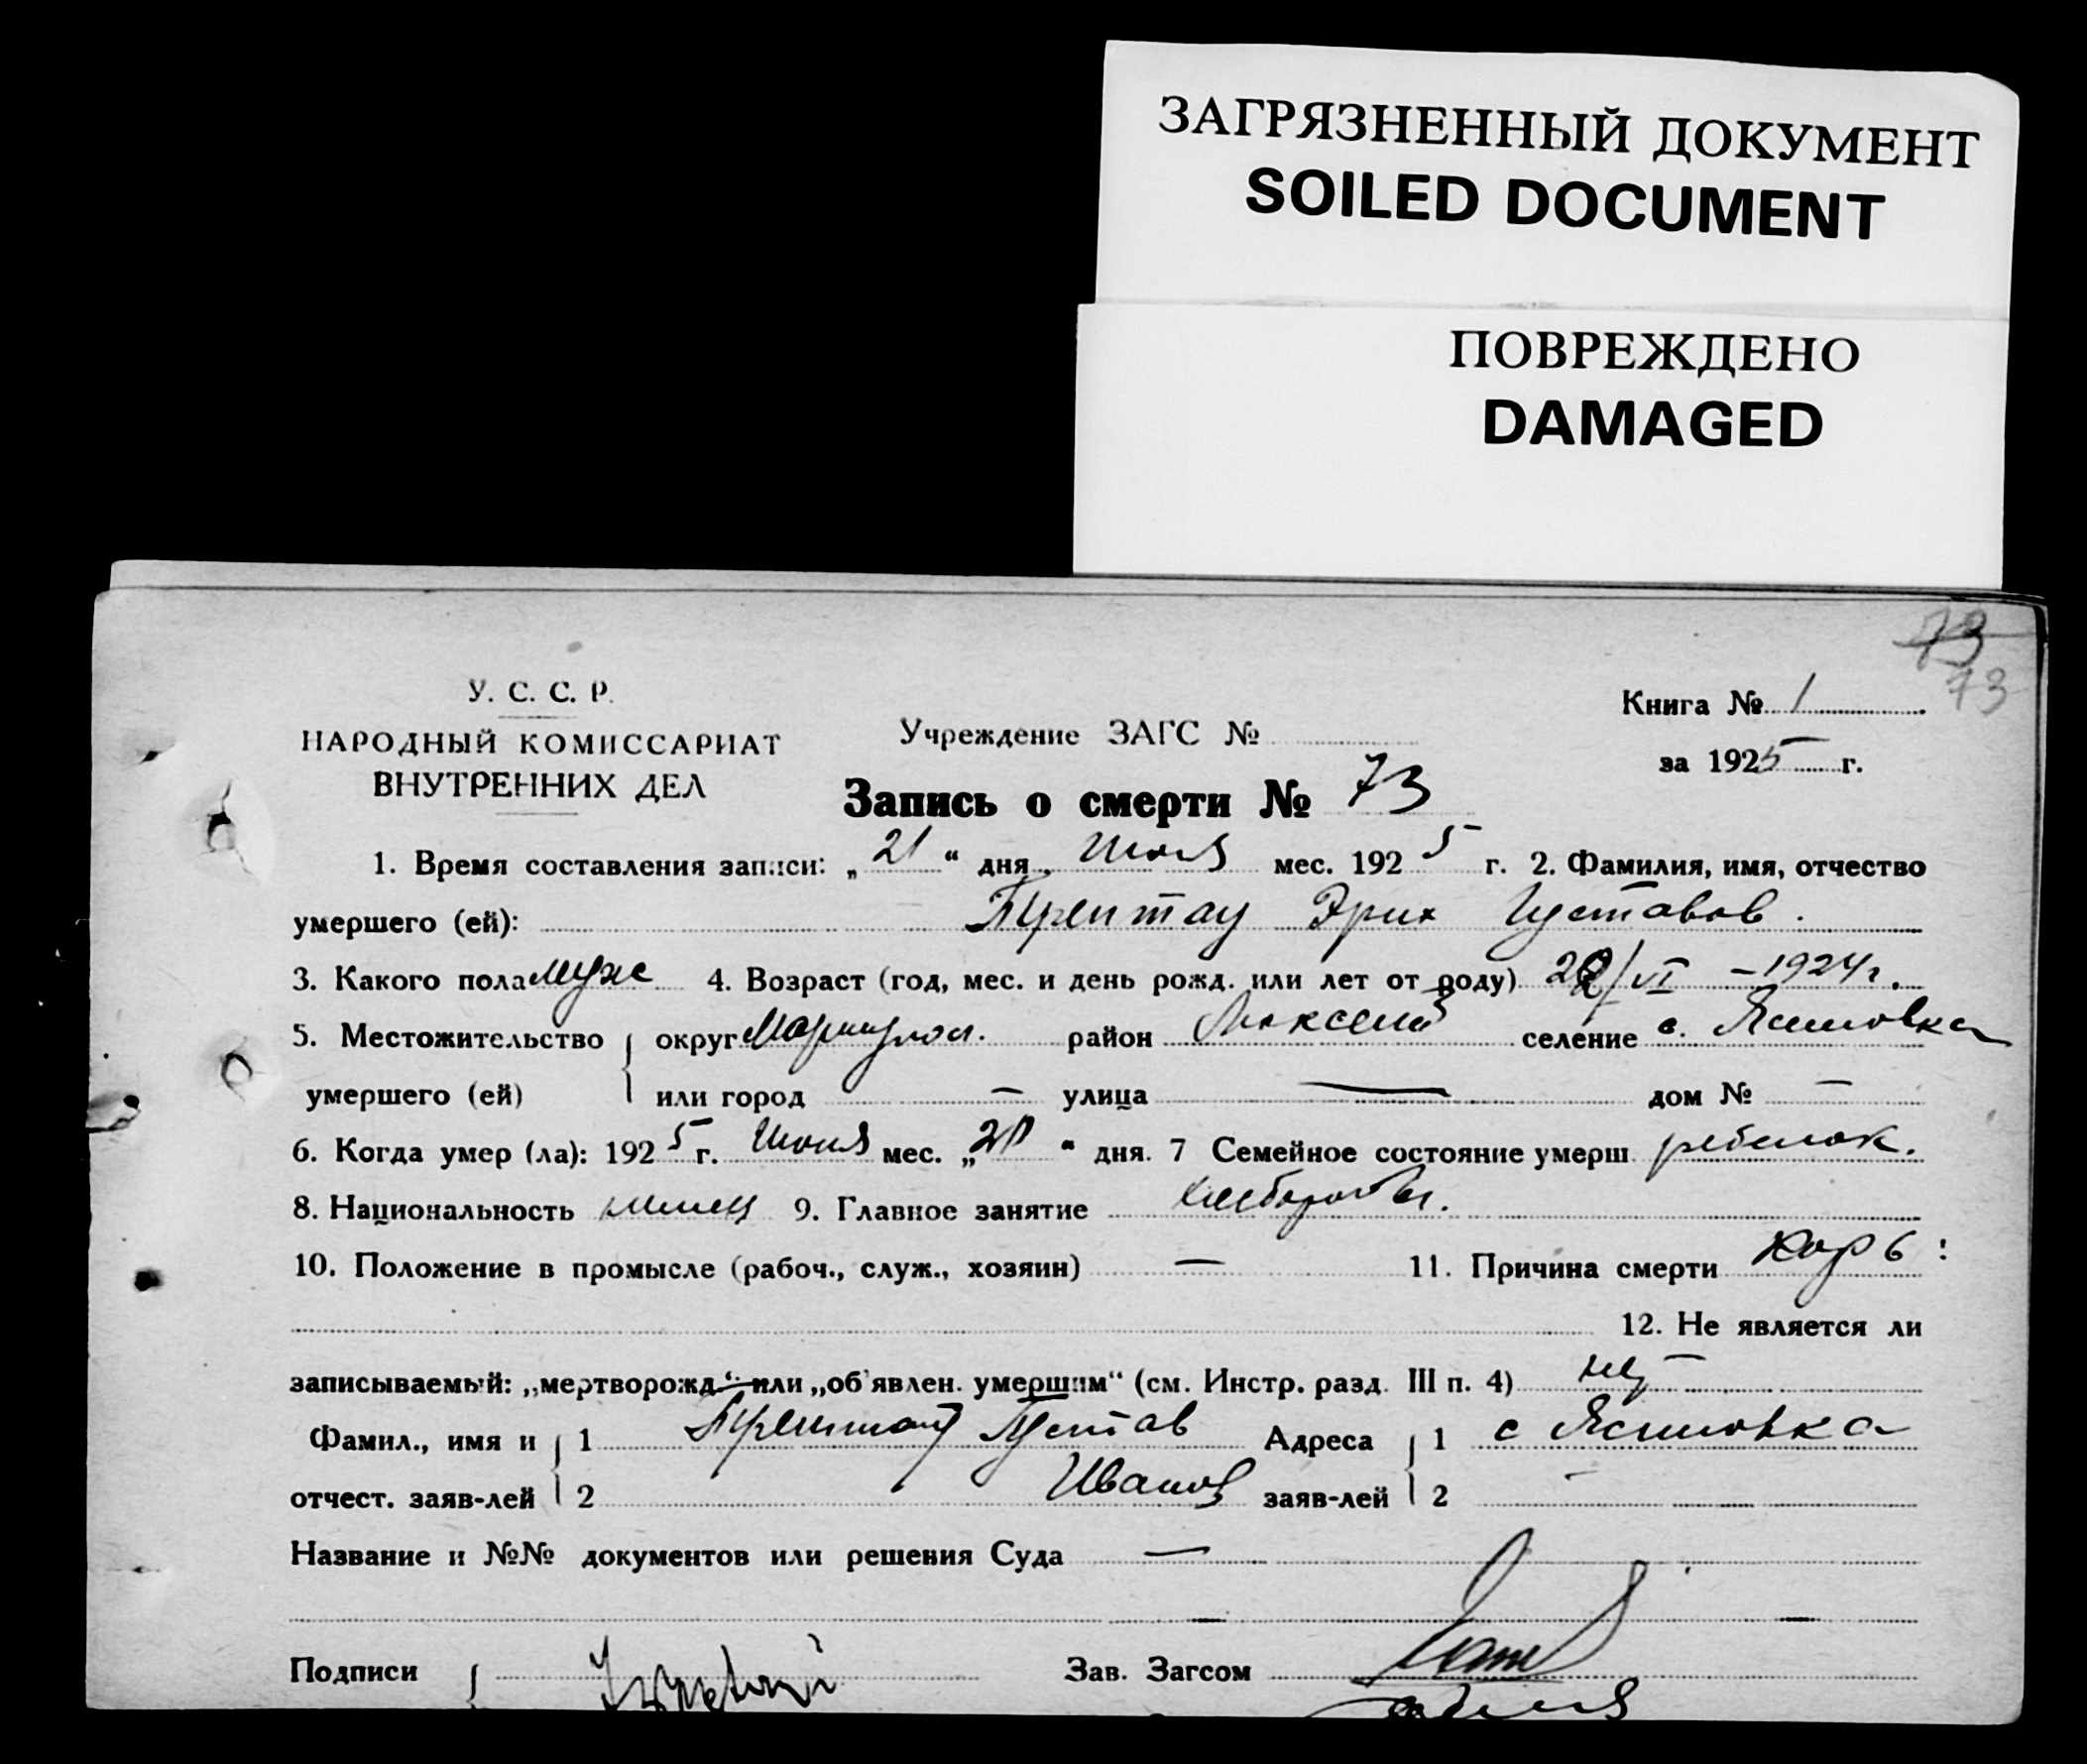 ЗАГРЯЗНЕННЫЙ ДОКУМЕНТ
SOILED DOCUMENT
ПОВРЕЖДЕНО
DAMAGED
73
73
У. С. С. Р.
НАРОДНЫЙ КОМИССАРИАТ
ВНУТРЕННИХ ДЕЛ
Учреждение ЗАГС №
Книга № 1
за 1925 г.
Запись о смерти № 73
1. Время составления записи: „21“ дня мес. 1925 г. 2. Фамилия, имя, отчество
умершего (ей): Трептау Эрих Густавов.
3. Какого пола муже 4. Возраст (год, мес. и день рожд. или лет от роду) /VI – 1924 г.
5. Местожительство округ Мариупол. район селение с. Ясиновка
умершего (ей) или город — улица — дом № —
6. Когда умер (ла): 1925 г. мес. „20“ дня. 7 Семейное состояние умерш. ребенок.
8. Национальность немец 9. Главное занятие
10. Положение в промысле (рабоч., служ., хозяин) — 11. Причина смерти корь
12. Не является ли
записываемый: „мертворожд.“ или „об'явлен. умершим“ (см. Инстр. разд. III п. 4) нет
Фамил., имя и 1 Трептау Густав Адреса 1 с Ясиновка
отчест. заяв-лей 2 Иванов заяв-лей 2 —
Название и №№ документов или решения Суда —
Подписи Зав. Загсом